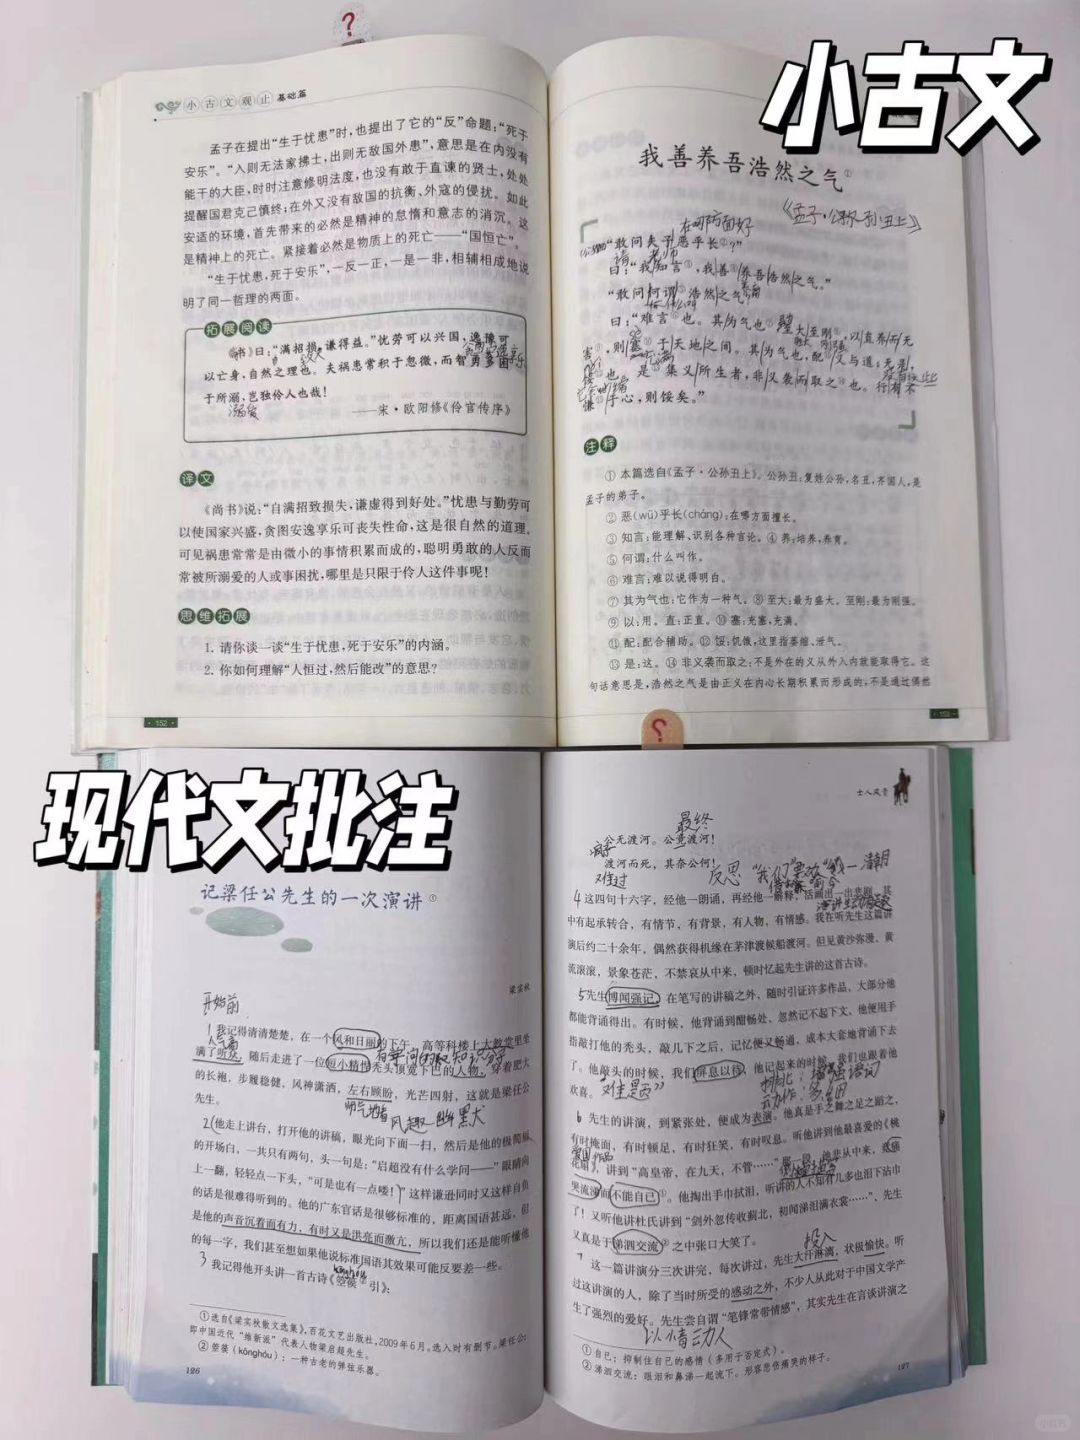 小古文
?
小古文观止 基础篇
孟子在提出“生于忧患”时,也提出了它的“反”命题:“死于
安乐”。“入则无法家拂士,出则无敌国外患”,意思是在内没有
能干的大臣,时时注意修明法度,也没有敢于直谏的贤士,处处
提醒国君克己慎终;在外又没有敌国的抗衡、外寇的侵扰。如此
安适的环境,首先带来的必然是精神的怠惰和意志的消沉。这
是精神上的死亡。紧接着必然是物质上的死亡——“国恒亡”。
“生于忧患,死于安乐”,一反一正,一是一非,相辅相成地说
明了同一哲理的两面。
拓展阅读
《书》曰:“满招损,谦得益。”忧劳可以兴国,逸豫可
以亡身,自然之理也。夫祸患常积于忽微,而智勇多困
于所溺,岂独伶人也哉!
溺爱
——宋·欧阳修《伶官传序》
译文
《尚书》说:“自满招致损失,谦虚得到好处。”忧患与勤劳可
以使国家兴盛,贪图安逸享乐可丧失性命,这是很自然的道理。
可见祸患常常是由微小的事情积累而成的,聪明勇敢的人反而
常被所溺爱的人或事困扰,哪里是只限于伶人这件事呢!
思维拓展
1. 请你谈一谈“生于忧患,死于安乐”的内涵。
2. 你如何理解“人恒过,然后能改”的意思?
·152·
我善养吾浩然之气①
《孟子·公孙丑上》
在哪方面好
“敢问夫子恶乎长②?”
请 老师
曰:“我知言③,我善养④吾浩然之气。”
“敢问何谓⑤浩然之气?”
曰:“难言⑥也。其为气也⑦,至大至刚⑧,以直养而无
害⑨,则塞⑩于天地之间。其为气也,配⑪义与道;无是,
馁⑫也。是⑬集义所生者,非义袭而取之⑭也。行有不
慊于心,则馁矣。”
注释
① 本篇选自《孟子·公孙丑上》。公孙丑:复姓公孙,名丑,齐国人,是
孟子的弟子。
② 恶(wū)乎长(cháng):在哪方面擅长。
③ 知言:能理解、识别各种言论。④ 养:培养,养育。
⑤ 何谓:什么叫作。
⑥ 难言:难以说得明白。
⑦ 其为气也:它作为一种气。⑧ 至大:最为盛大。至刚:最为刚强。
⑨ 以:用。直:正直。⑩ 塞:充塞,充满。
⑪ 配:配合辅助。⑫ 馁:饥饿,这里指萎缩、泄气。
⑬ 是:这。⑭ 非义袭而取之:不是外在的义从外入内就能取得它。这
句话意思是,浩然之气是由正义在内心长期积累而形成的,不是通过偶然
·153·
?
现代文批注
记梁任公先生的一次演讲①
梁实秋
开始前
1 我记得清清楚楚,在一个风和日丽的下午,高等科楼上大教堂里坐
满了听众,随后走进了一位短小精悍秃头顶宽下巴的人物,穿着肥大
有学问的知识分子
的长袍,步履稳健,风神潇洒,左右顾盼,光芒四射,这就是梁任公
先生。
风趣 幽默
2 他走上讲台,打开他的讲稿,眼光向下面一扫,然后是他的极简短
的开场白,一共只有两句,头一句是:“启超没有什么学问——”眼睛向
上一翻,轻轻点一下头,“可是也有一点喽!”这样谦逊同时又这样自负
的话是很难得听到的。他的广东官话是很够标准的,距离国语甚远,但
是他的声音沉着而有力,有时又是洪亮而激亢,所以我们还是能听懂他
的每一字,我们甚至想如果他说标准国语其效果可能反要差一些。
3 我记得他开头讲一首古诗《箜篌②引》:
①选自《梁实秋散文选集》,百花文艺出版社,2009年6月。选入时有删节。梁任公:
即中国近代“维新派”代表人物梁启超先生。
②箜篌(kōnghóu):一种古老的弹弦乐器。
126
士人风骨
最终
公无渡河。公竟渡河!
渡河而死,其奈公何!
难过
反思
4 这四句十六字,经他一朗诵,再经他一解释,活画出一出悲剧,其
中有起承转合,有情节,有背景,有人物,有情感。我在听先生这篇讲
演后约二十余年,偶然获得机缘在茅津渡候船渡河。但见黄沙弥漫,黄
流滚滚,景象苍茫,不禁哀从中来,顿时忆起先生讲的这首古诗。
5 先生博闻强记,在笔写的讲稿之外,随时引证许多作品,大部分他
都能背诵得出。有时候,他背诵到酣畅处,忽然记不起下文,他便用手
指敲打他的秃头,敲几下之后,记忆便又畅通,成本大套地背诵下去
了。他敲头的时候,我们屏息以待,他记起来的时候,我们也跟着他
欢喜。
“难题”
6 先生的讲演,到紧张处,便成为表演。他真是手之舞之足之蹈之,
有时掩面,有时顿足,有时狂笑,有时叹息。听他讲到他最喜爱的《桃
花扇》,讲到“高皇帝,在九天,不管……”那一段,他悲从中来,竟痛
哭流涕而不能自已①。他掏出手巾拭泪,听讲的人不知有几多也泪下沾巾
了!又听他讲杜氏讲到“剑外忽传收蓟北,初闻涕泪满衣裳……”,先生
又真是于涕泗交流②之中张口大笑了。
投入
7 这一篇讲演分三次讲完,每次讲过,先生大汗淋漓,状极愉快。听
过这讲演的人,除了当时所受的感动之外,不少人从此对于中国文学产
生了强烈的爱好。先生尝自谓“笔锋常带情感”,其实先生在言谈讲演之
以情动人
①自已:抑制住自己的感情(多用于否定式)。
②涕泗交流:眼泪和鼻涕一起流下。形容悲伤痛哭的样子。
127
小红书